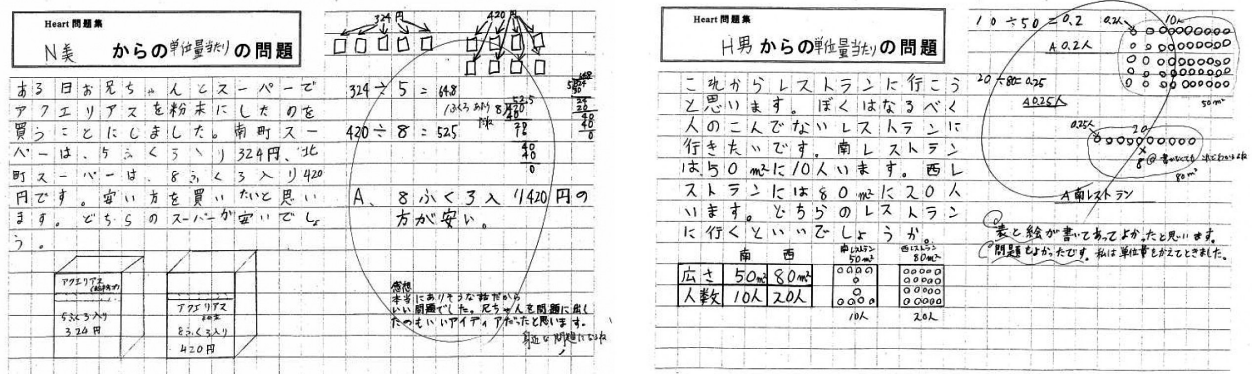 Heart 問題集
N美 からの単位量当たりの問題
ある日お兄ちゃんとスーパーで
アクエリアスを粉末にしたのを
買うことにしました。南町スー
パーは、5ふくろ入り324円、北
町スーパーは、8ふくろ入り420
円です。安い方を買いたいと思い
ます。どちらのスーパーが安いでしょ
う。
アクエリアス
5ふくろ入り
324円
アクエリアス
粉末
8ふくろ入り
420円
324円
420円
324÷5=64.8
420÷8=52.5
A、8ふくろ入り420円の
方が安い。
感想
本当にありそうな話だから
いい問題でした。兄ちゃんを問題に出し
たのもいいアイディアだったと思います。
身近な問題になるね
Heart 問題集
H男からの単位量当たりの問題
これからレストランに行こう
と思います。ぼくはなるべく
人のこんでないレストランに
行きたいです。南レストラン
は、50m²に10人います。西レ
ストランには80m²に20人
います。どちらのレストラン
に行くといいでしょうか。
南 西
広さ 50m² 80m²
人数 10人 20人
南レストラン
50m²
10人
西レストラン
80m²
20人
10÷50=0.2
A 0.2人
20÷80=0.25
A 0.25人
0.2人
10人
50m²
0.25人
20
80m²
A 南レストラン
表と絵が書いてあってよかったと思います。
問題もよかったです。私は単位量をかえてときました。